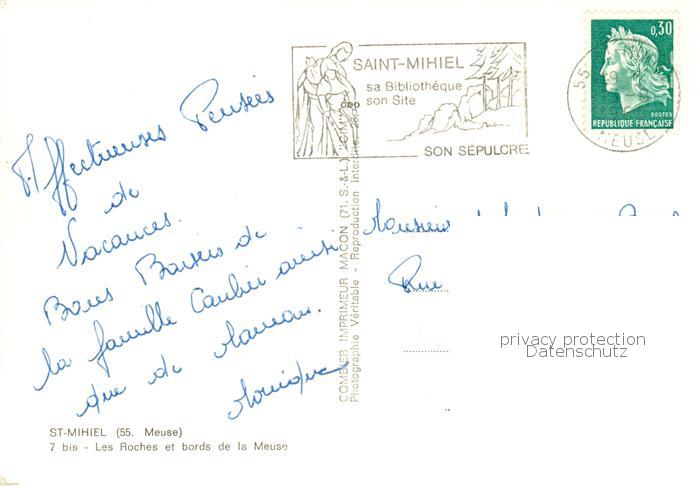 SAINT-MIHIEL
sa Bibliothèque
son Site
SON SÉPULCRE
0,30
POSTES
REPUBLIQUE FRANÇAISE
55
MEUSE
Affectueuses Pensées
de
Vacances.
Bons Baisers de
la famille ainsi
que de Maman.
Monique
COMBIER IMPRIMEUR MACON (71. S.-&-L.) "CIM"
Photographie Véritable - Reproduction Interdite
Monsieur
Rue
privacy protection
Datenschutz
ST-MIHIEL (55. Meuse)
7 bis - Les Roches et bords de la Meuse